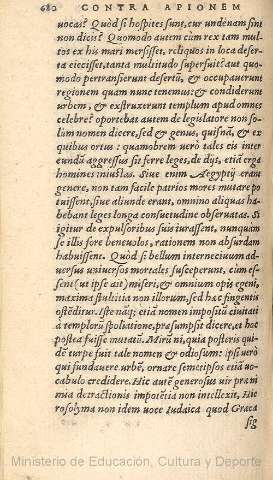 682 CONTRA APIONEM
uocas? Quòd si hospites sunt, cur undenam sint
non dicis? Quomodo autem cùm rex tam mul-
tos ex his mari mersisset, reliquos in loca deser-
ta eiecisset, tanta multitudo superfuit? aut quo-
modo pertransierunt desertũ, & occupauerunt
regionem quam nunc tenemus: & condiderunt
urbem, & exstruxerunt templum apud omnes
celebre? oportebat autem de legislatore non so-
lùm nomen dicere, sed & genus, quisnã, & ex
quibus ortus: quamobrem uerò tales eis inter
eundũ aggressus sit ferre leges, de dijs, etiã erga
homines iniustas. Siue enim Aegyptij erant
genere, non tam facile patrios mores mutare po
tuissent, siue aliunde erant, omnino aliquas ha-
bebant leges longa consuetudine obseruatas. Si
igitur de expulsoribus suis iurassent, nunquam
se illis fore beneuolos, rationem non absurdam
habuissent. Quòd si bellum internecinum ad-
uersus uniuersos mortales susceperunt, cùm es-
sent (ut ipse ait) miseri, & omnium opis egeni,
maxima stultitia non illorum, sed hæc fingentis
ostẽditur. Iste nãq; etiã nomen impositũ ciuitati
à templorũ spoliatione, præsumpsit dicere, at hoc
postea fuisse mutatũ. Mirũ ni, quia posteris qui-
dẽ turpe fuit tale nomen & odiosum: ipsi uerò
qui fundauere urbẽ, ornare semetipsos etiã uo-
cabulo credidere. Hic autẽ generosus uir præ ni
mia detractionis impotẽtia non intellexit, Hie
rosolyma non idem uoce Iudaica quod Græca
sig
Ministerio de Educación, Cultura y Deporte